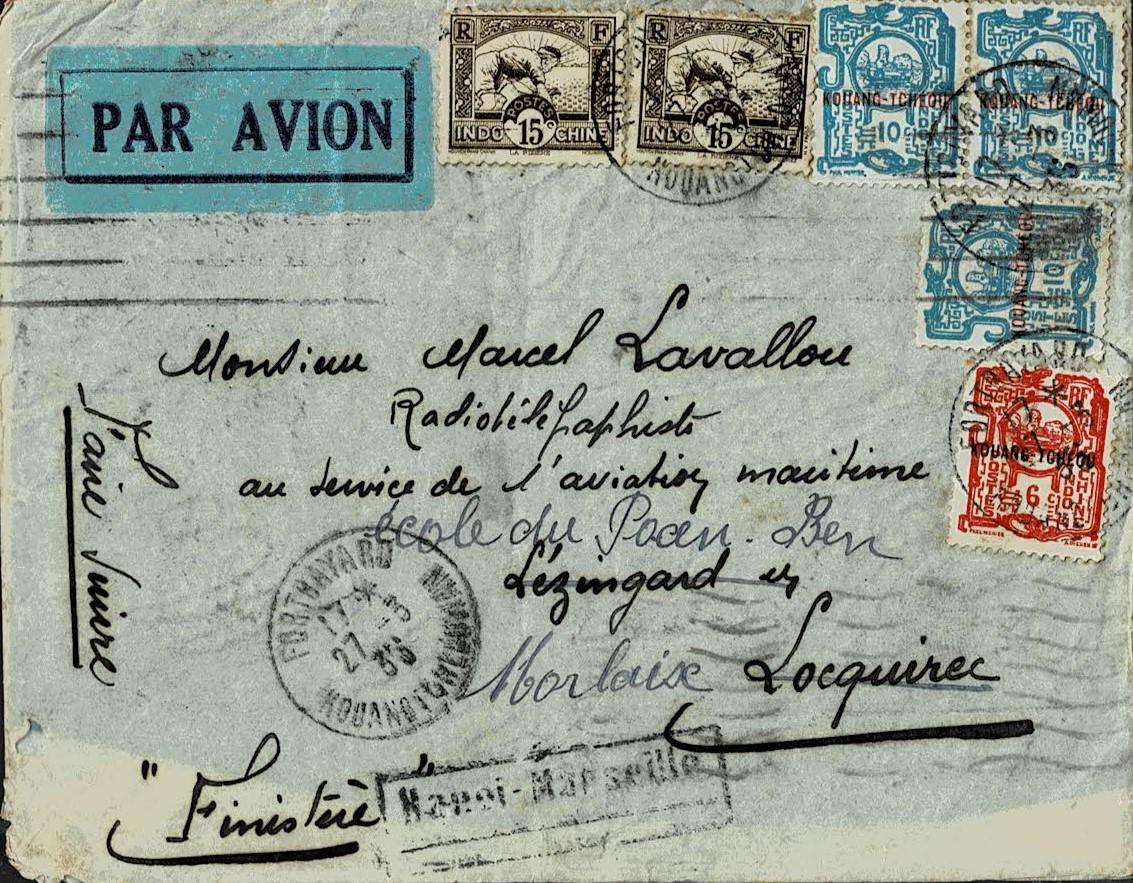 PAR AVION
R F
POSTES
INDO 15 CHINE
R F
POSTES
INDO 15 CHINE
RF
KOUANG-TCHEOU
10
RF
KOUANG-TCHEOU
10
RF
KOUANG-TCHEOU
10
RF
KOUANG-TCHEOU
6
Monsieur Marcel Lavallou
Radiotélégaphiste
au service de l'aviation maritime
école du Poan-Ben
Lézingard en
Morlaix Locquirec
"Finistère"
J'aire suivre
FORTBAYARD
17 * 
27 -3
35
KOUANGTCHEOUWAN
Hanoi-Marseille